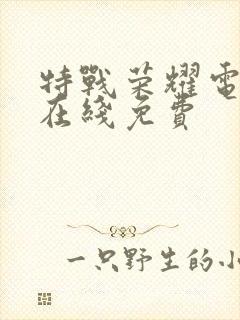 特戰荣耀電
在綫免費
一只野生的小